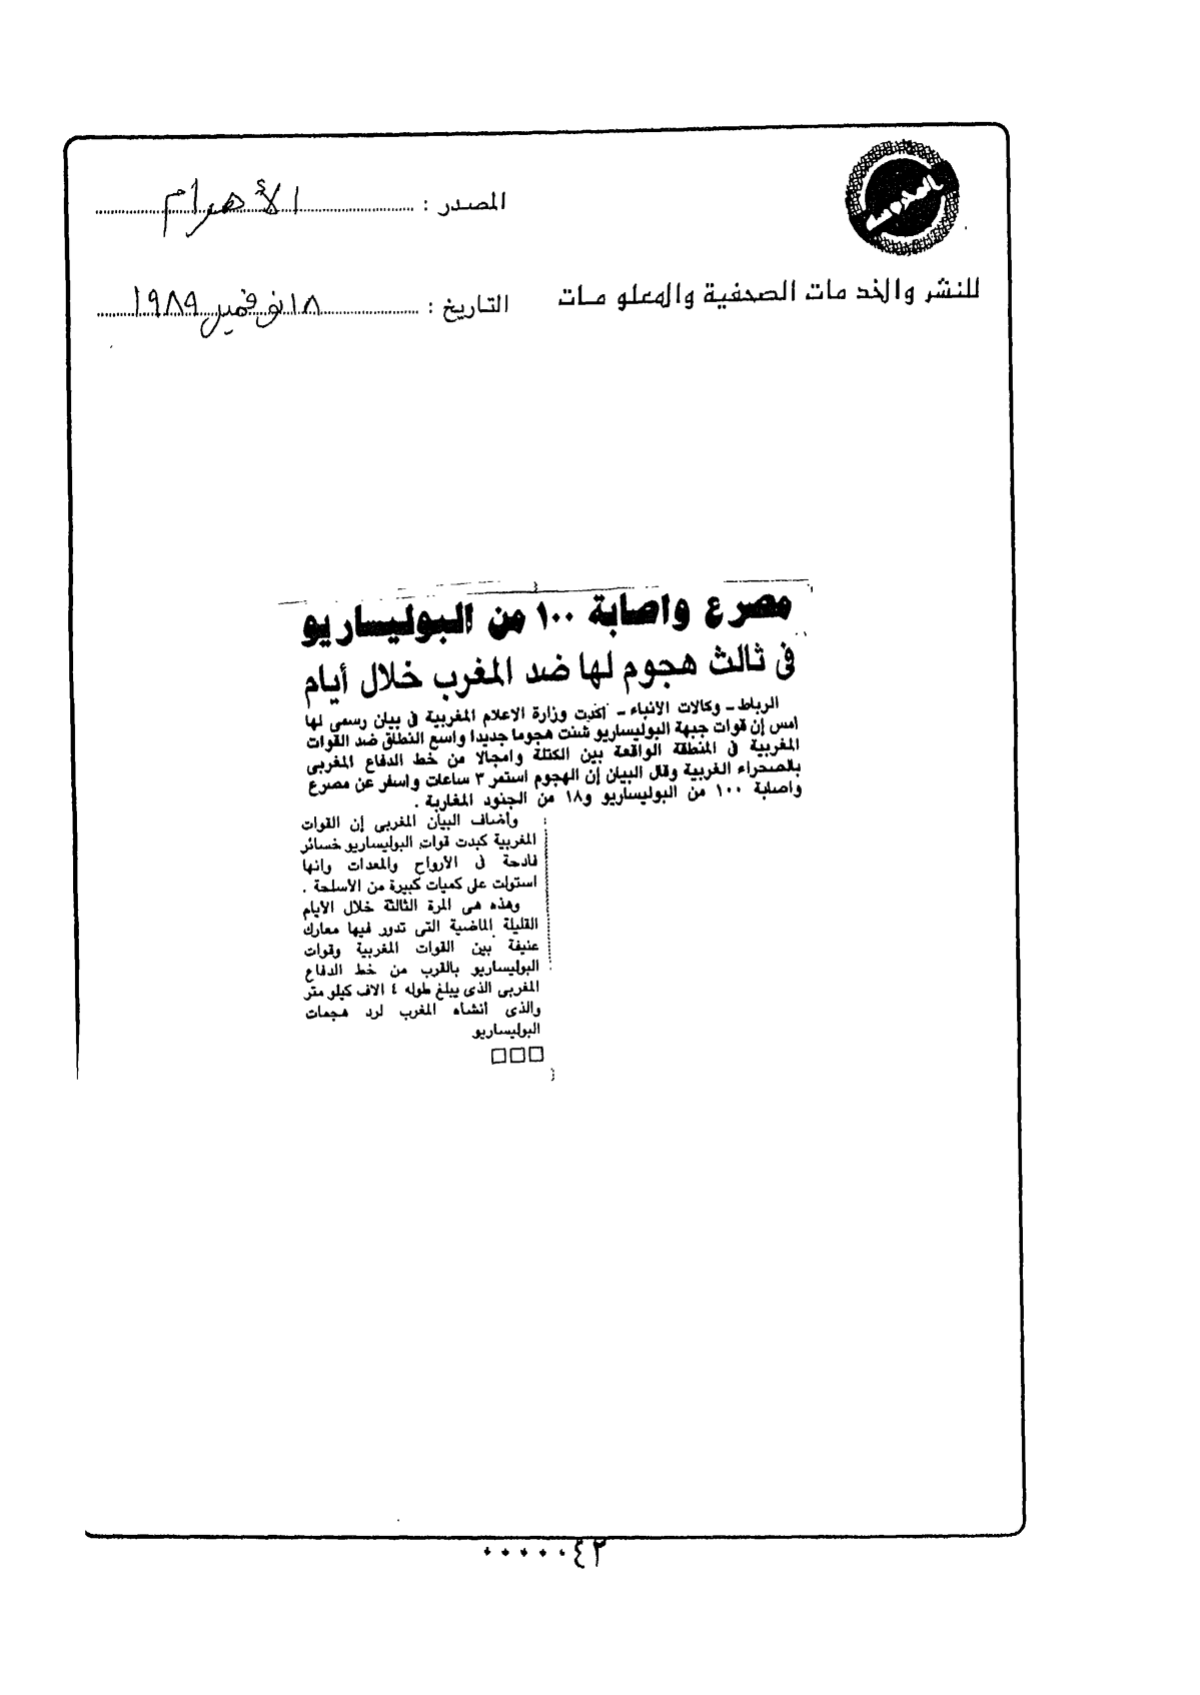 المصدر : الأهرام
للنشر والخدمات الصحفية والمعلومات
التاريخ : ١٨ نوفمبر ١٩٨٩
مصرع واصابة ١٠٠ من البوليساريو
فى ثالث هجوم لها ضد المغرب خلال أيام
الرباط ـ وكالات الانباء ـ أكدت وزارة الاعلام المغربية فى بيان رسمى لها
امس إن قوات جبهة البوليساريو شنت هجوما جديدا واسع النطاق ضد القوات
المغربية فى المنطقة الواقعة بين الكتلة وامجالا من خط الدفاع المغربى
بالصحراء الغربية وقال البيان إن الهجوم استمر ٣ ساعات واسفر عن مصرع
واصابة ١٠٠ من البوليساريو و١٨ من الجنود المغاربة .
وأضاف البيان المغربى إن القوات
المغربية كبدت قوات البوليساريو خسائر
فادحة فى الأرواح والمعدات وانها
استولت على كميات كبيرة من الأسلحة .
وهذه هى المرة الثالثة خلال الأيام
القليلة الماضية التى تدور فيها معارك
عنيفة بين القوات المغربية وقوات
البوليساريو بالقرب من خط الدفاع
المغربى الذى يبلغ طوله ٤ الاف كيلو متر
والذى أنشاه المغرب لرد هجمات
البوليساريو
□□□
٠٠٠٠٠٤٢